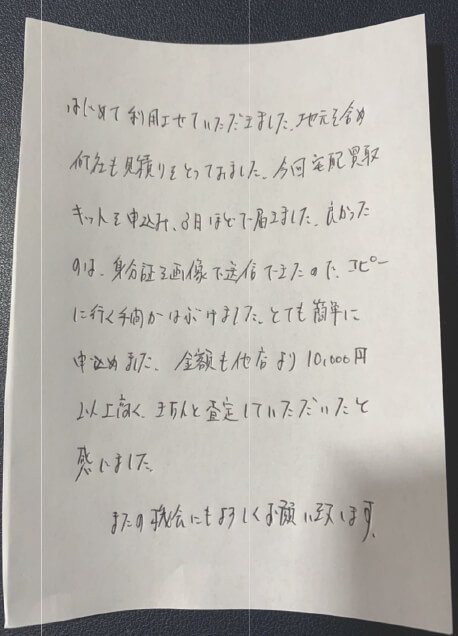 はじめて利用させていただきました。地元を含め
何社も見積りをとってみました。今回宅配買取
キットを申込み、3日ほどで届きました。良かった
のは、身分証を画像で送信できたので、コピー
に行く手間がはぶけました。とても簡単に
申込めました。金額も他店より10,000円
以上高く、きちんと査定していただいたと
感じました。
またの機会にもよろしくお願い致します。